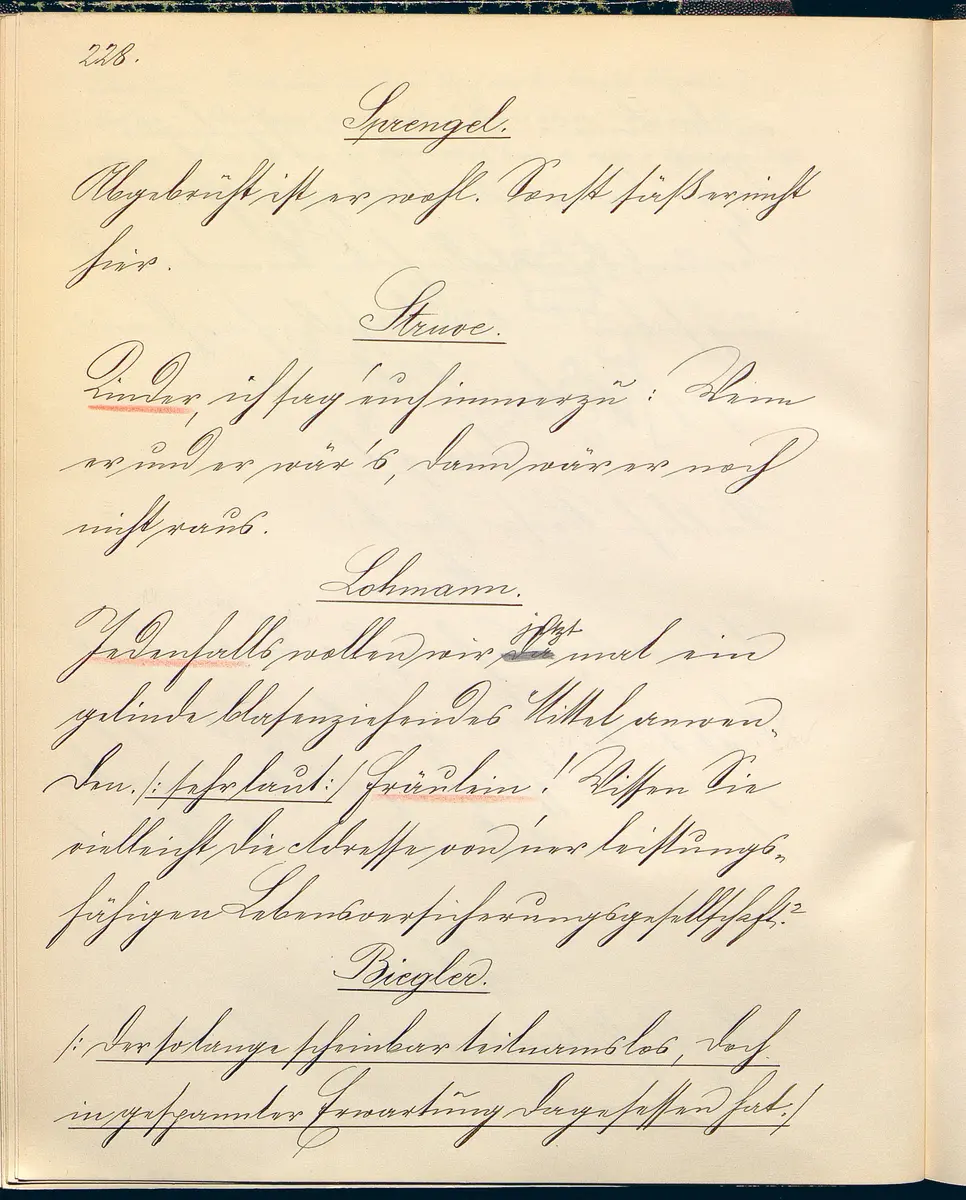 228.
Sprengel.
Abgebrüht ist er wohl. Sonst säß er nicht
hier.
Struve.
Kinder, ich sag' euch immerzu: Wenn
er und er wär's, dann wär er noch
nicht raus.
Lohmann.
jetzt
Jedenfalls wollen wir da mal ein
gelinde blasenziehendes Mittel anwen-
den. /: sehr laut :/ Fräulein! Wissen Sie
vielleicht die Adresse von 'ner leistungs-
fähigen Lebensversicherungsgesellschaft!?
Biegler.
/: Der solange scheinbar teilnamslos, doch
in gespannter Erwartung dagesessen hat. :/